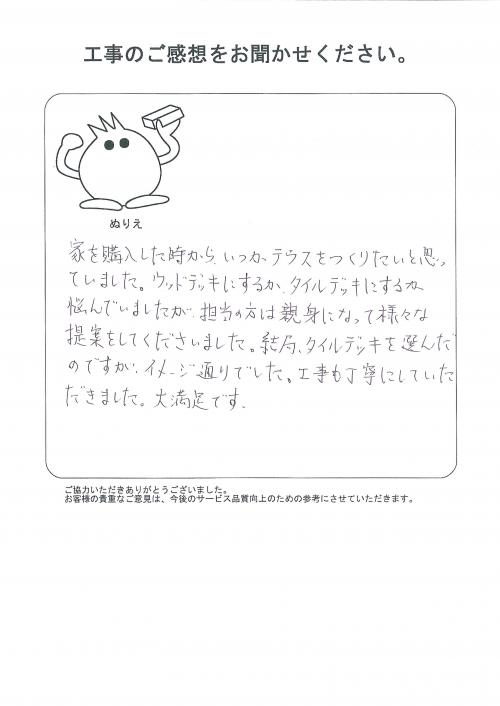 工事のご感想をお聞かせください。
ぬりえ
家を購入した時から、いつかテラスをつくりたいと思っ
ていました。ウッドデッキにするか、タイルデッキにするか
悩んでいましたが、担当の方は親身になって様々な
提案をしてくださいました。結局、タイルデッキを選んだ
のですが、イメージ通りでした。工事も丁寧にしていた
だきました。大満足です。
ご協力いただきありがとうございました。
お客様の貴重なご意見は、今後のサービス品質向上のための参考にさせていただきます。